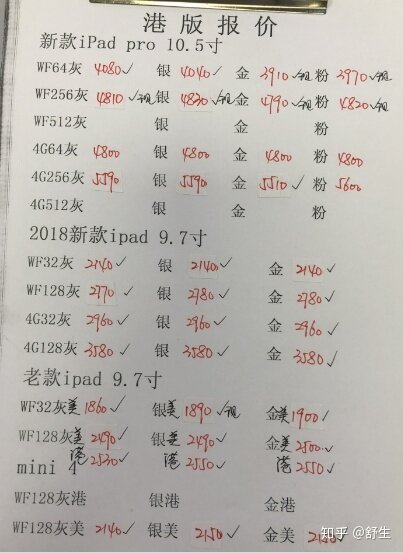 港版报价
新款iPad pro 10.5寸
WF64灰 4080✓ 银 4040✓ 金 3910✓现 粉 3970✓现
WF256灰 4810✓现 银 4830✓现 金 4790✓现 粉 4820✓现
WF512灰 银 金 粉
4G64灰 4800 银 4800 金 4800 粉 4800
4G256灰 5590 银 5590 金 5510✓ 粉 5600
4G512灰 银 金 粉
2018新款ipad 9.7寸
WF32灰 2140✓ 银 2140✓ 金 2140✓
WF128灰 2770✓ 银 2780✓ 金 2780✓
4G32灰 2960✓ 银 2960✓ 金 2960✓
4G128灰 3580✓ 银 3580✓ 金 3580✓
老款ipad 9.7寸
WF32灰美 1860✓ 银美 1890✓现 金美 1900✓
WF128灰美 2490✓ 银美 2490✓ 金美 2500✓
港 2530✓ 港 2550✓ 港 2550✓
mini 4
WF128灰港 银港 金港
WF128灰美 2140✓ 银美 2150✓ 金美
知乎 @舒生